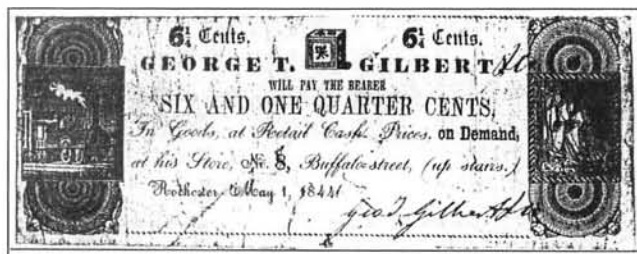 6¼ Cents. 6¼ Cents.
GEORGE T. GILBERT
WILL PAY THE BEARER
SIX AND ONE QUARTER CENTS,
In Goods, at Retail Cash Prices, on Demand,
at his Store, No. 8, Buffalo street, (up stairs.)
Rochester May 1, 1844
Geo. T. Gilbert